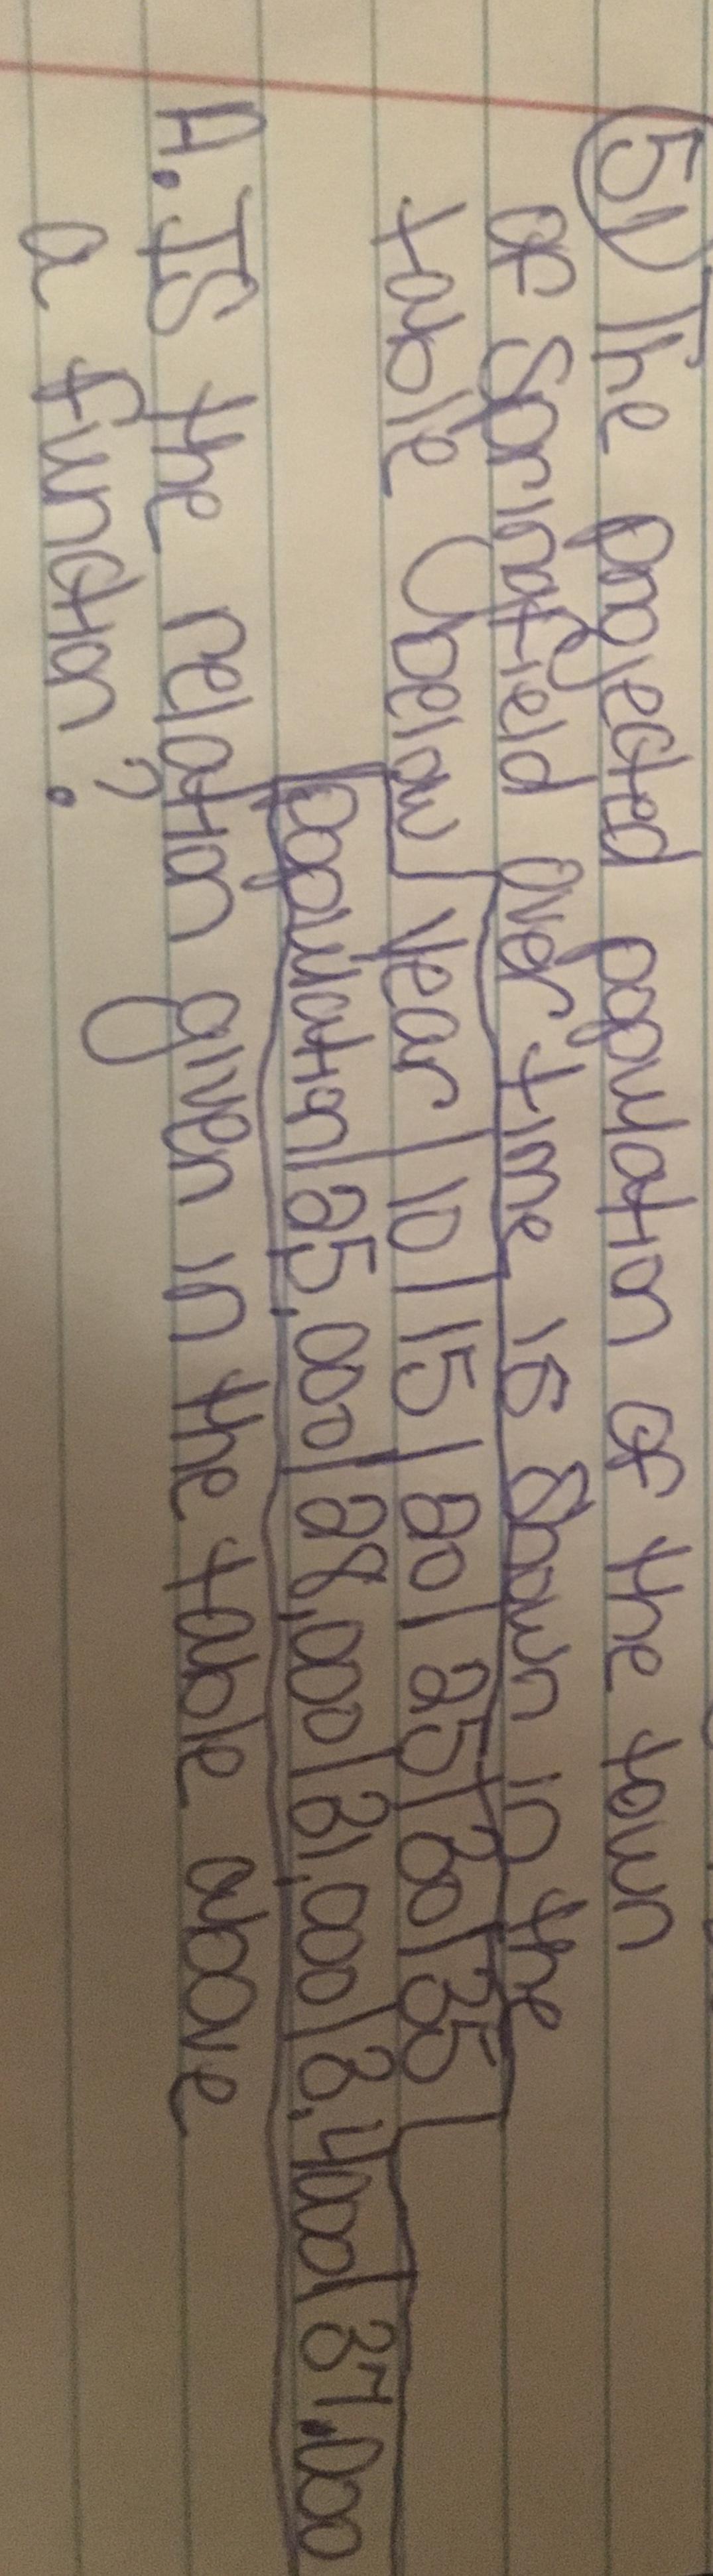 5) The projected population of the town
of Springfield over time is shown in the
table below
Year | 10 | 15 | 20 | 25 | 30 | 35
Population | 25,000 | 28,000 | 31,000 | 3,4000 | 37,000
A. Is the relation given in the table above
a function?